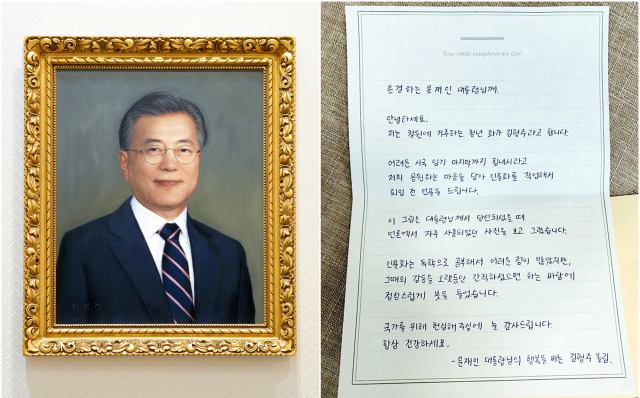 Your smile completes my day!
존경하는 문재인 대통령님께.
안녕하세요.
저는 창원에 거주하는 청년 화가 김형주라고 합니다.
어려운 시국 임기 마지막까지 힘내시라고
저의 응원하는 마음을 담아 인물화를 작업해서
퇴임 전 선물을 드립니다.
이 그림은 대통령님께서 당선되셨을 때
언론에서 자주 사용되었던 사진을 보고 그렸습니다.
인물화는 독학으로 공부해서 어려운 점이 많았지만,
그때의 감동을 오랫동안 간직하셨으면 하는 바람에
정성스럽게 붓을 들었습니다.
국가를 위해 헌신해주심에 늘 감사드립니다.
항상 건강하세요.
- 문재인 대통령님의 행복을 비는 김형주 올림.